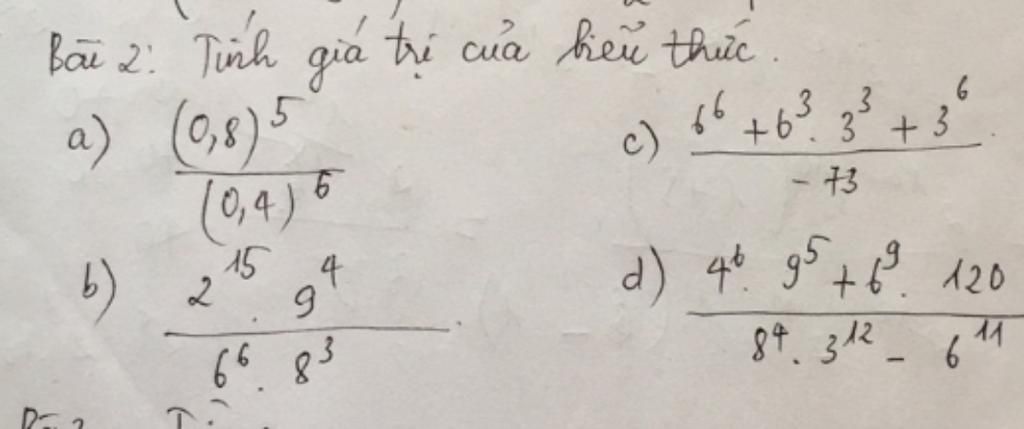 Bài 2: Tính giá trị của biểu thức.
a) (0,8)^5 / (0,4)^6
c) 6^6 + 6^3 . 3^3 + 3^6 / -73
b) 2^15 . 9^4 / 6^6 . 8^3
d) 4^6 . 9^5 + 6^9 . 120 / 8^4 . 3^12 - 6^11